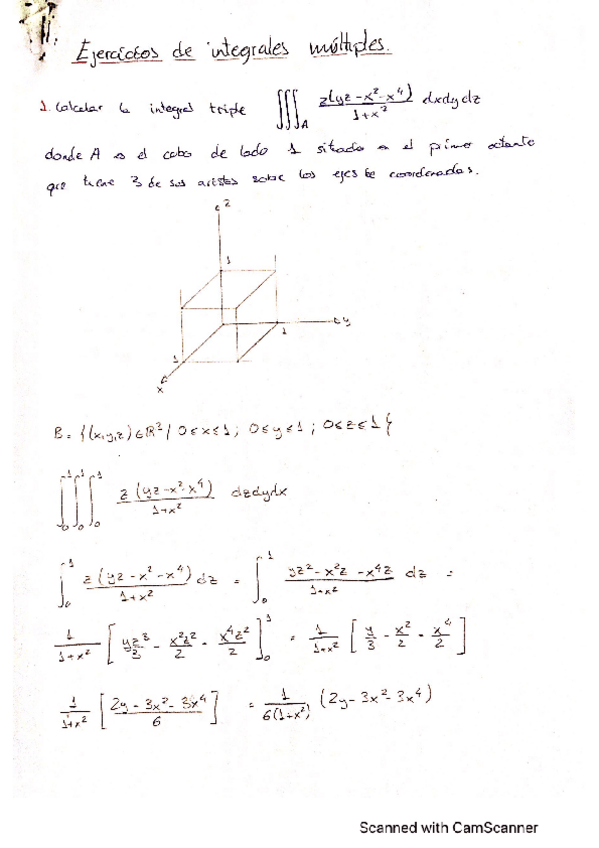 Ejercicios de integrales múltiples.
1. Calcular la integral triple ∫∫∫_A z(yz-x²-x⁴)/(1+x²) dxdydz
donde A es el cubo de lado 1 situado en el primer octante
que tiene 3 de sus aristas sobre los ejes de coordenadas.
z
1
1 y
1
x
B = {(x,y,z) ∈ ℝ³ / 0≤x≤1; 0≤y≤1; 0≤z≤1}
∫₀¹∫₀¹∫₀¹ z(yz-x²-x⁴)/(1+x²) dzdydx
∫₀¹ z(yz-x²-x⁴)/(1+x²) dz = ∫₀¹ (yz²-x²z-x⁴z)/(1+x²) dz =
1/(1+x²) [yz³/3 - x²z²/2 - x⁴z²/2]₀¹ = 1/(1+x²) [y/3 - x²/2 - x⁴/2]
1/(1+x²) [(2y-3x²-3x⁴)/6] = 1/(6(1+x²)) (2y-3x²-3x⁴)
Scanned with CamScanner